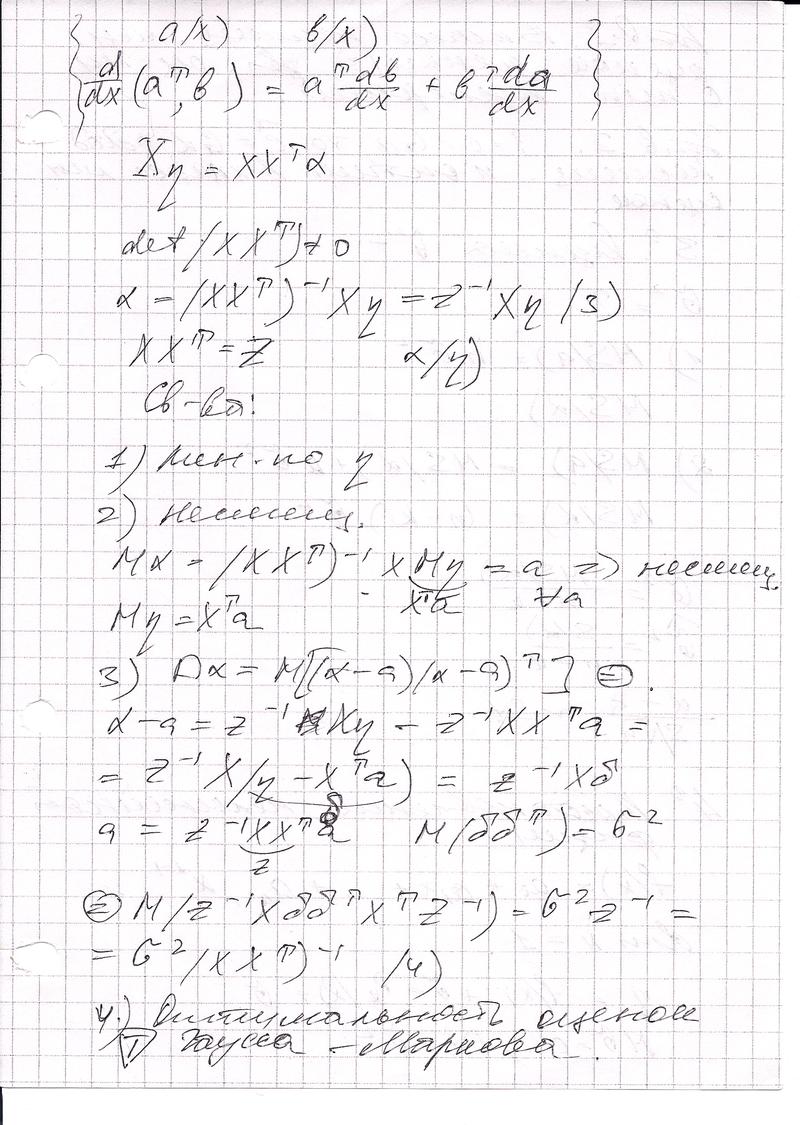 a(x) b(x)
d/dx (aᵀ, b) = aᵀ db/dx + bᵀ da/dx
Xη = XXᵀα
det(XXᵀ) ≠ 0
α = (XXᵀ)⁻¹Xη = Z⁻¹Xη (3)
XXᵀ = Z α(η)
Св-ва:
1) лин. по η
2) несмещ.
Mα = (XXᵀ)⁻¹ X Mη = a => несмещ.
Xᵀa ∀a
Mη = Xᵀa
3) Dα = M[(α-a)(α-a)ᵀ] =
α-a = Z⁻¹Xη - Z⁻¹XXᵀa =
= Z⁻¹X(η - Xᵀa) = Z⁻¹Xδ
δ
a = Z⁻¹XXᵀa M(δδᵀ) = σ²
Z
= M(Z⁻¹XδδᵀXᵀZ⁻¹) = σ²Z⁻¹ =
= σ²(XXᵀ)⁻¹ (4)
4.) Оптимальность оценок
T Гаусса - Маркова.